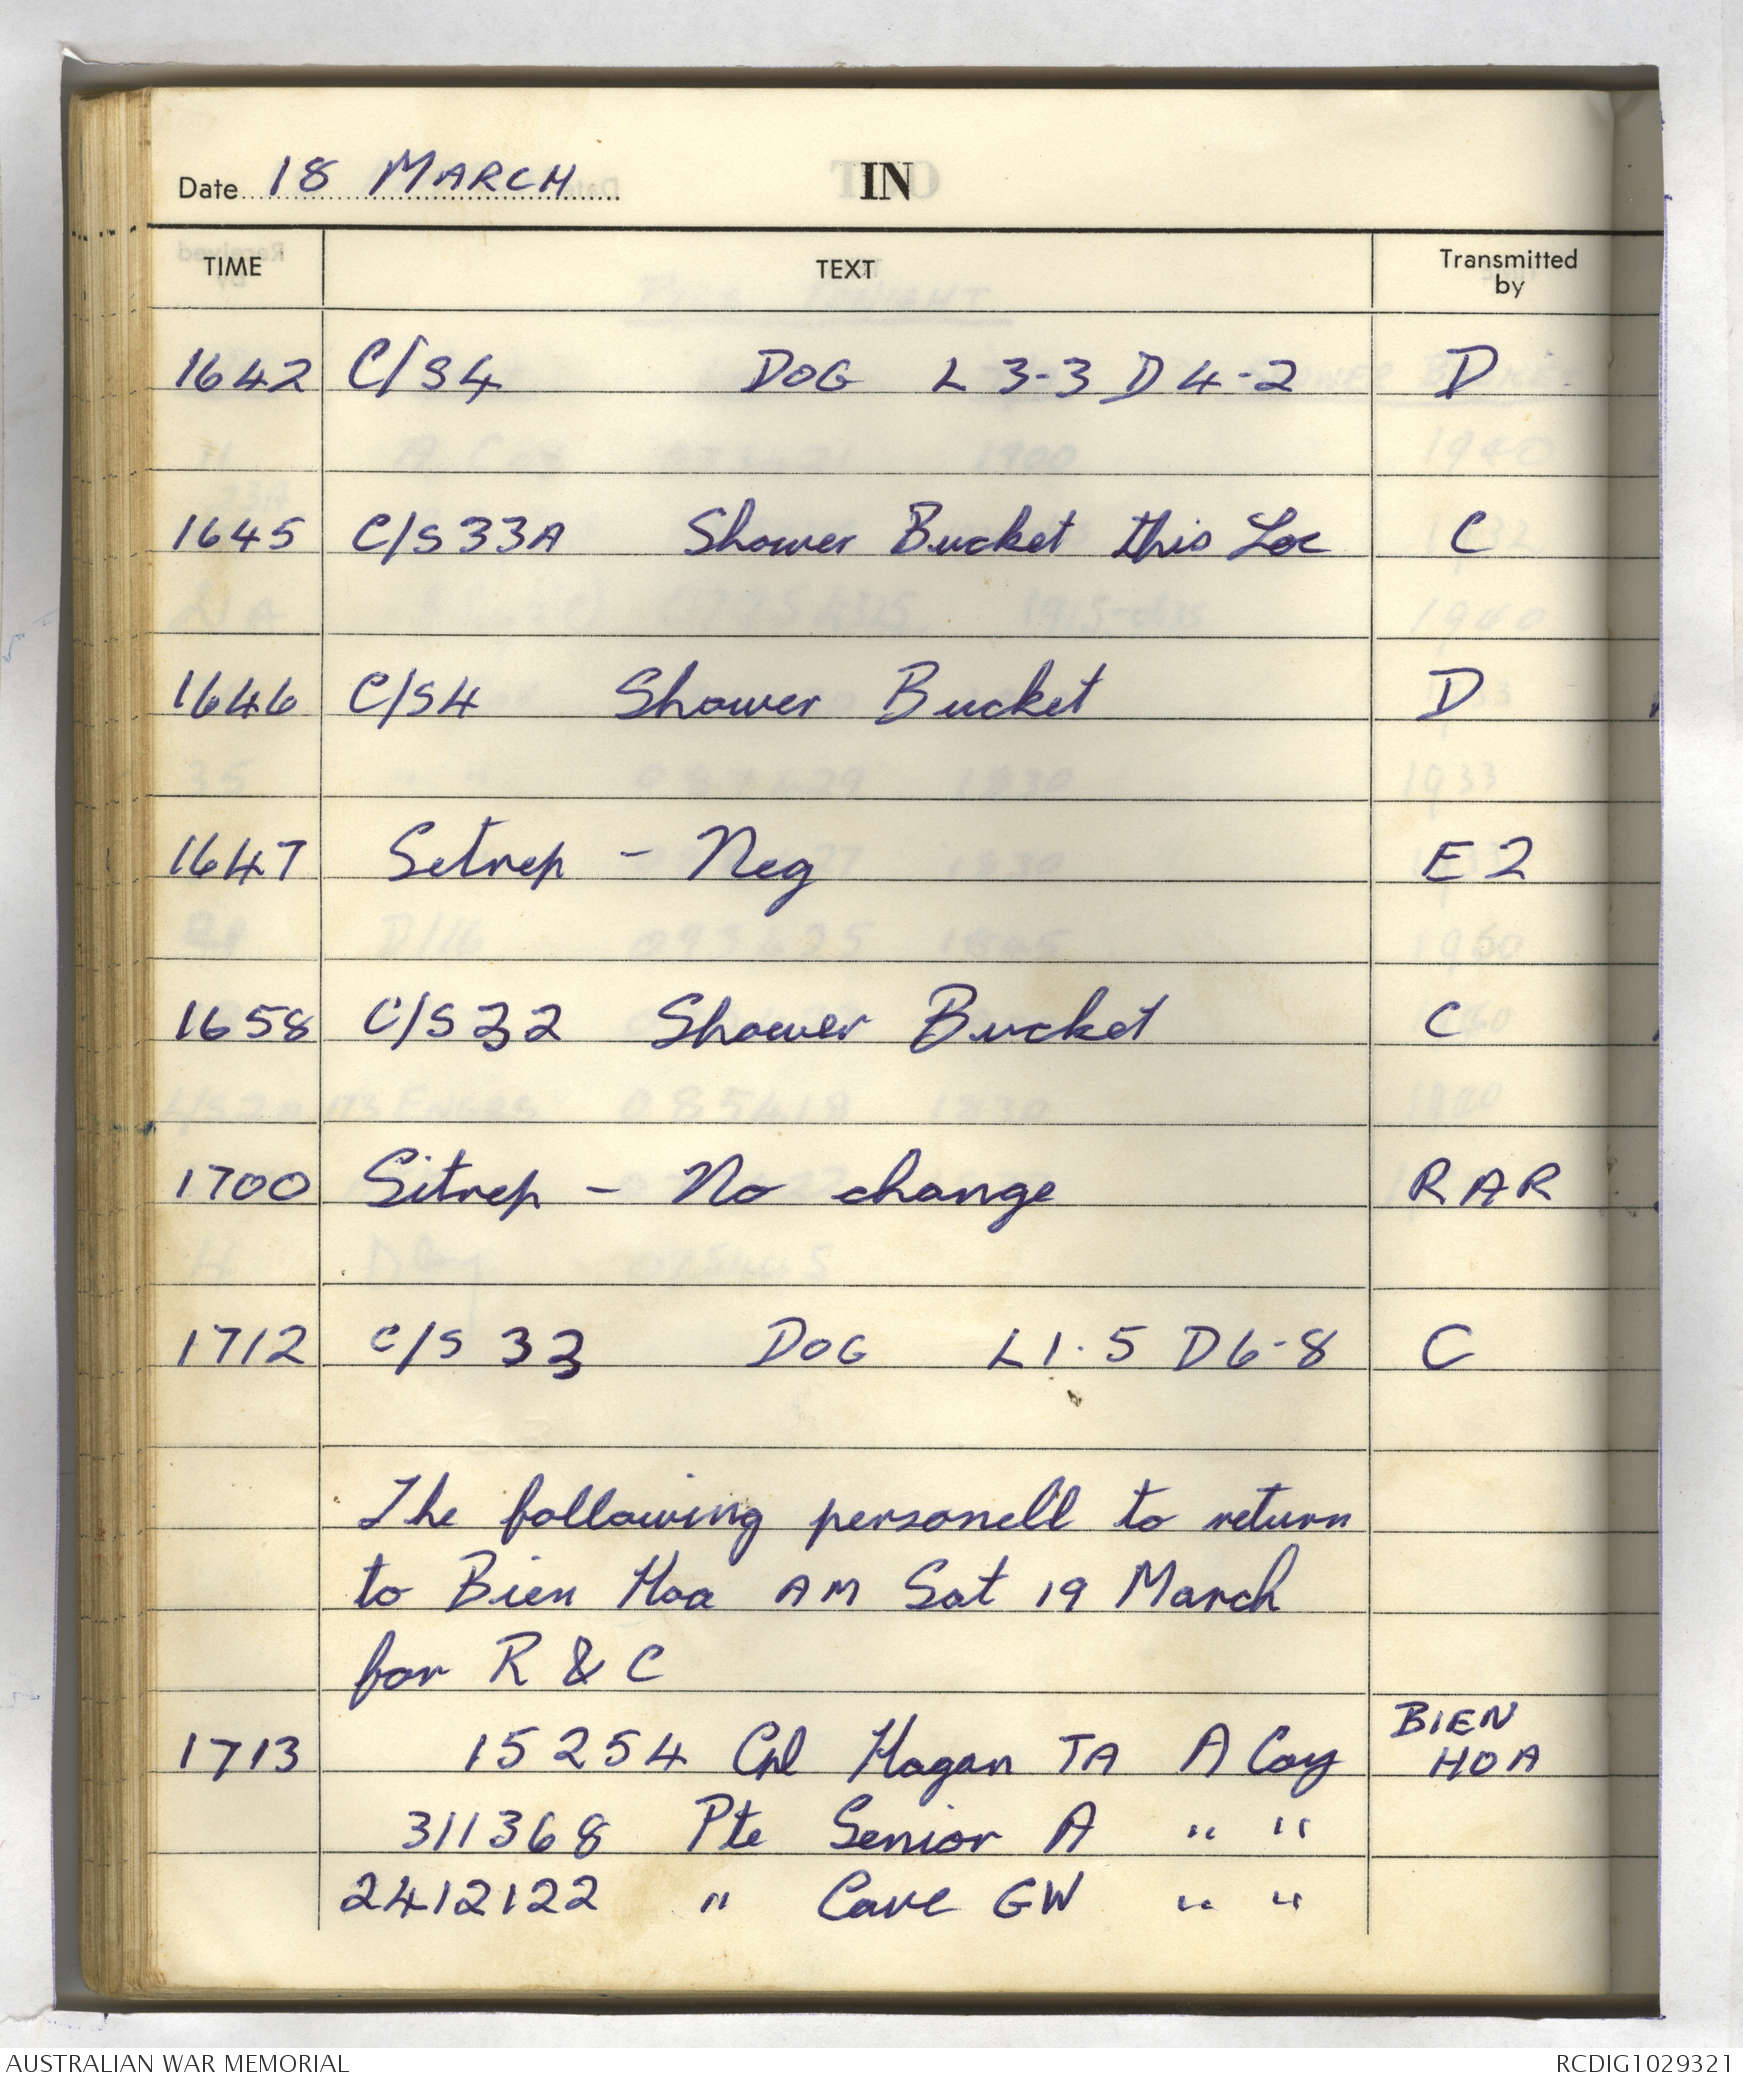 Date 18 MARCH IN
TIME TEXT Transmitted by
1642 C/S4 DOG L 3-3 D 4-2 D
1645 C/S 33A Shower Bucket this Loc C
1646 C/S4 Shower Bucket D
1647 Setrep - Neg E 2
1658 C/S 32 Shower Bucket C
1700 Sitrep - No change RAR
1712 C/S 33 DOG L 1.5 D 6-8 C
The following personell to return
to Bien Hoa AM Sat 19 March
for R & C
1713 15254 Cpl Hagan TA A Coy BIEN HOA
311368 Pte Senior A " "
2412122 " Cave GW " "
AUSTRALIAN WAR MEMORIAL RCDIG1029321